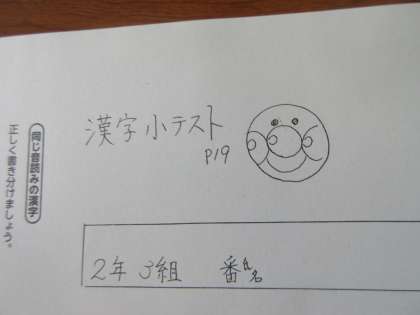 漢字小テスト
P19
同じ音読みの漢字
正しく書き分けましょう。
2年 3組 番 氏名